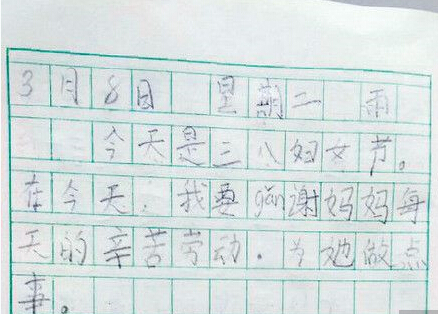 3月8日 星期二 雨
今天是三八妇女节。
在今天，我要gǎn谢妈妈每
天的辛苦劳动。为她做点
事。